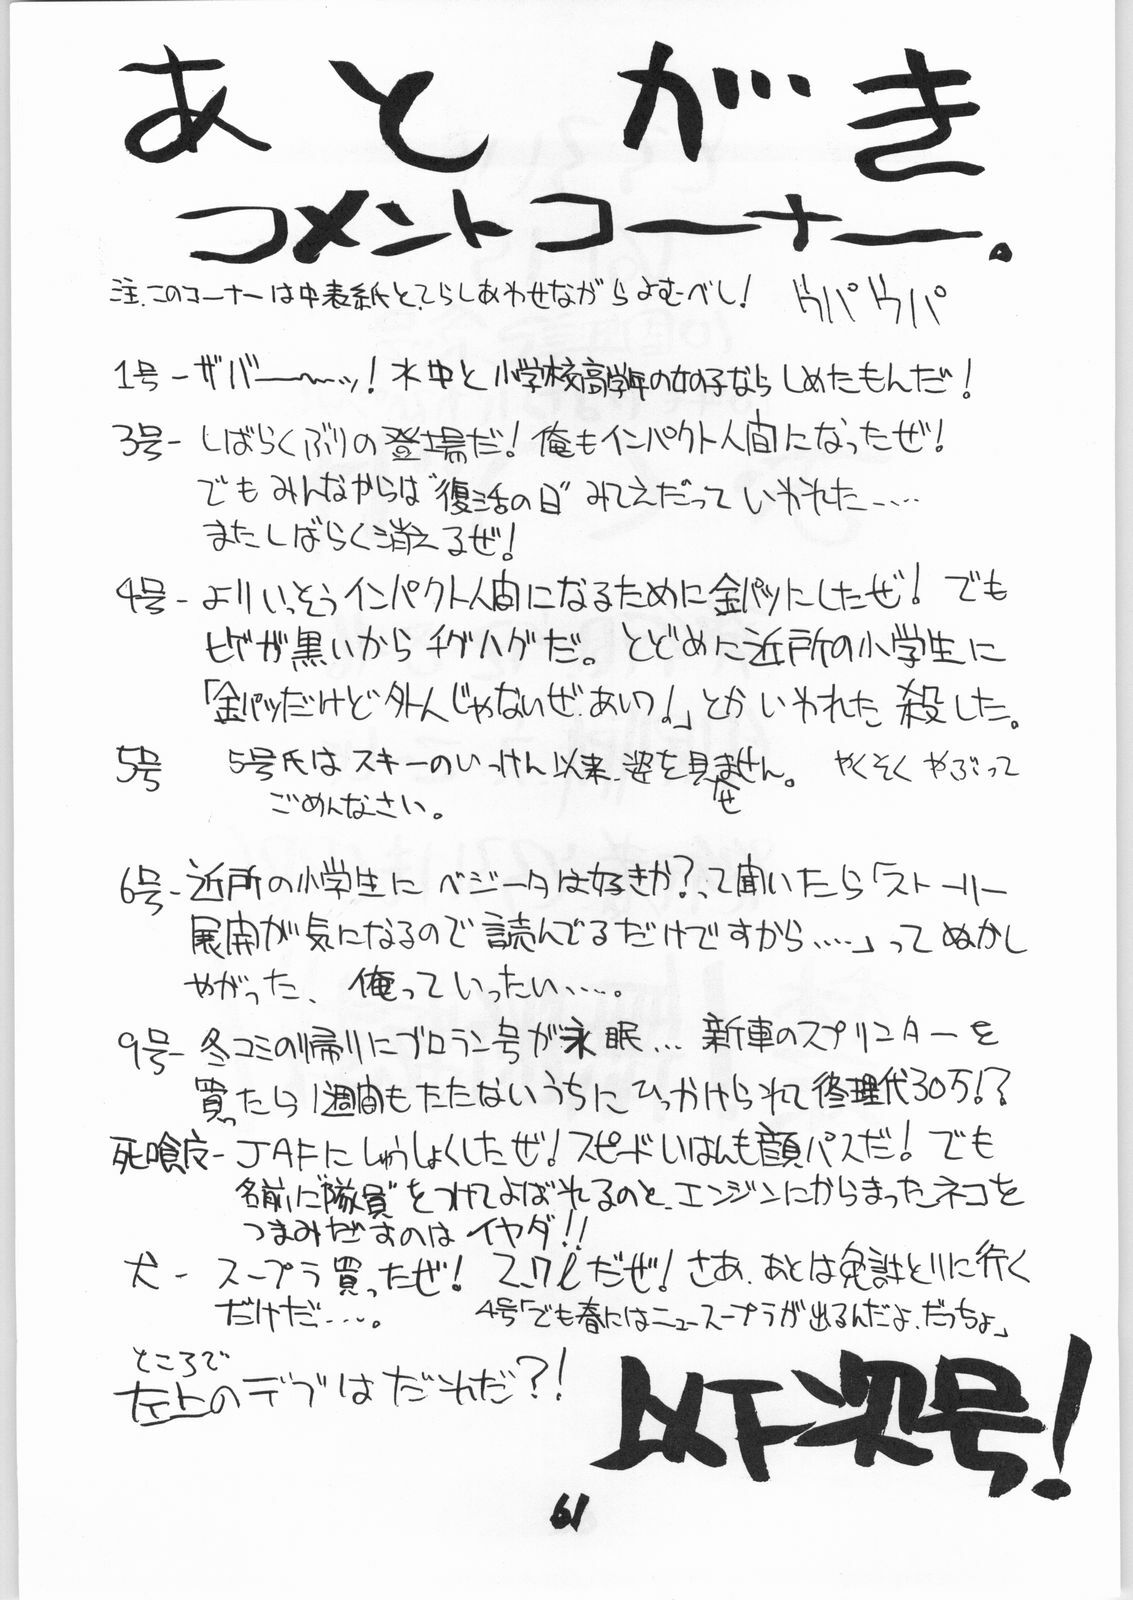 あとがき
コメントコーナー。
注.このコーナーは中表紙とてらしあわせながらよむべし! ウパウパ
1号-ザバー~ッ!水中と小学校高学年の女の子ならしめたもんだ!
3号-しばらくぶりの登場だ!俺もインパクト人間になったぜ!
でもみんなからは"復活の日"みてえだっていわれた……
またしばらく消えるぜ!
4号-よりいっそうインパクト人間になるために金パツにしたぜ!でも
ヒゲが黒いからチグハグだ。とどめに近所の小学生に
「金パツだけど外人じゃないぜ.あいつ!」とかいわれた 殺した。
5号 5号氏はスキーのいっけん以来、姿を見ません。 やくそくやぶって
せ
ごめんなさい。
6号-近所の小学生にベジータは好きか?って聞いたら「ストーリー
展開が気になるので読んでるだけですから……」ってぬかし
やがった、俺っていったい……。
9号-冬コミの帰りにブロラン号が永眠… 新車のスプリンターを
買ったら1週間もたたないうちにひっかけられて修理代30万!?
死喰皮-JAFにしゅうしょくしたぜ!スピードいはんも顔パスだ!でも
名前に"隊員"をつけてよばれるのと、エンジンにからまったネコを
つまみだすのはイヤダ!!
犬-スープラ買ったぜ! 2.7ℓだぜ!さあ、あとは免許とりに行く
だけだ……。 4号「でも春にはニュースープラが出るんだよ.だっちょ」
ところで
左上のデブはだれだ?!
以下次号!
61